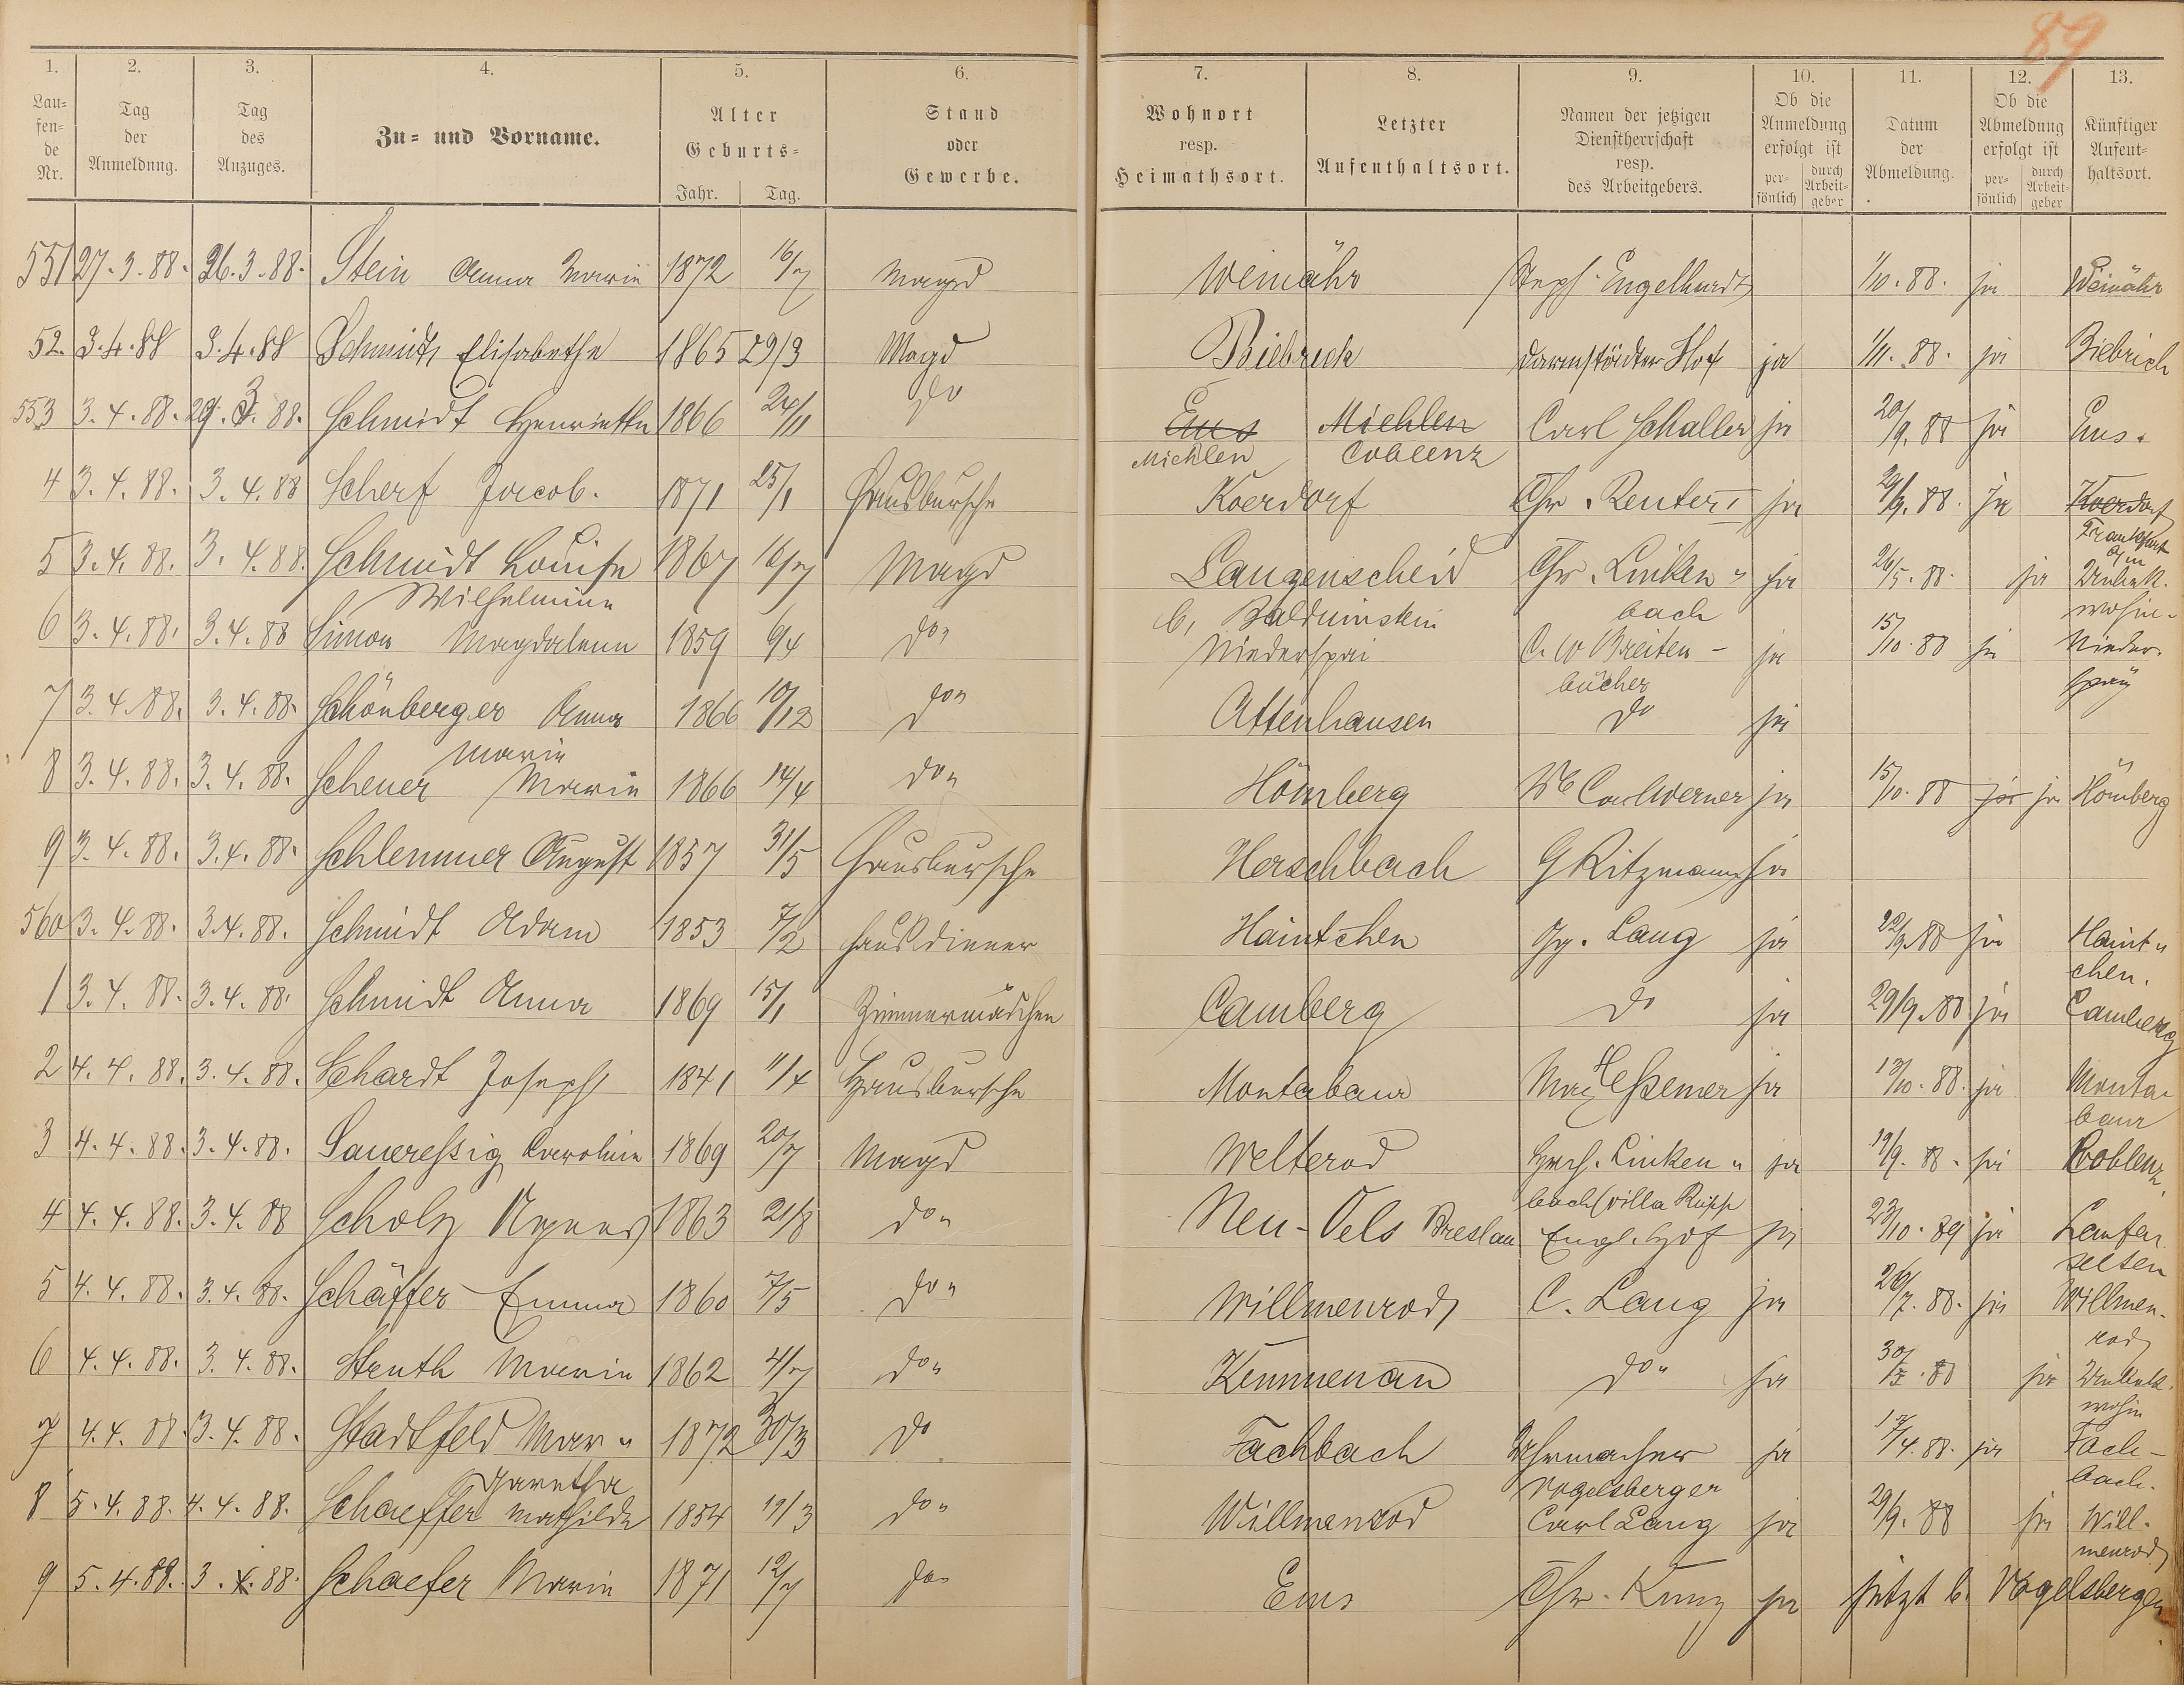 89
1. 2. 3. 4. 5. 6. 7. 8. 9. 10. 11. 12. 13.
Lau=fen=de Nr. Tag der Anmeldung. Tag des Anzuges. Zu= und Vorname. Alter Geburts= Jahr. Tag. Stand oder Gewerbe. Wohnort resp. Heimathsort. Letzter Aufenthaltsort. Namen der jetzigen Dienstherrschaft resp. des Arbeitgebers. Ob die Anmeldung erfolgt ist per=sönlich durch Arbeit=geber Datum der Abmeldung. Ob die Abmeldung erfolgt ist per=sönlich durch Arbeit=geber Künftiger Aufent=haltsort.
551 27.3.88. 26.3.88. Stein Anna Marie 1872 16/7 Magd Weinähr Steph. Engelhardt 1/10.88. ja Weinähr
52. 3.4.88 3.4.88 Schmidt Elisabethe 1865 29/3 Magd Biebrich Darmstädter Hof ja 1/11.88. ja Biebrich
553 3.4.88. 29.3.88. Schmidt Henriette 1866 24/11 do Ems Miehlen Carl Schaller ja 20/9.88 ja Ems.
Miehlen Coblenz
4 3.4.88. 3.4.88 Scherf Jacob. 1871 25/1 Hausbursche Koerdorf Chr. Reuter I ja 29/9.88. ja Koerdorf
Frankfurt a/m
5 3.4.88. 3.4.88. Schmidt Louise 1867 16/7 Magd Langenscheid Chr. Linken= ja 26/5.88. ja Unbek.
Wilhelmine b. Balduinstein bach wohin.
6 3.4.88. 3.4.88 Simon Magdalena 1859 6/4 do" Niederspai C. W Breiten- ja 15/10.88 ja Nieder-
bücher spay
7 3.4.88. 3.4.88. Schönberger Anna 1866 10/12 do" Attenhausen do ja
Marie
8 3.4.88. 3.4.88. Scheuer Marie 1866 14/4 do" Hömberg We Carl Werner ja 15/10.88 ja ja Hömberg
9 3.4.88. 3.4.88. Schlemmer August 1857 31/5 Hausbursche Herschbach G Ritzmann ja
560 3.4.88. 3.4.88. Schmidt Adam 1853 7/2 Hausdiener Haintchen Gg. Lang ja 22/9.88 ja Haint=
chen.
1 3.4.88. 3.4.88. Schmidt Anna 1869 15/1 Zimmermädchen Camberg do ja 29/9.88 ja Camberg
2 4.4.88. 3.4.88. Schardt Joseph 1841 11/4 Hausbursche Montabaur Max Heßemer ja 13/10.88. ja Monta=
baur
3 4.4.88. 3.4.88. Saueressig Caroline 1869 20/7 Magd Welterod Hrch. Linken= ja 19/9.88. ja Koblenz.
bach (villa Rupp
4 4.4.88. 3.4.88 Scholz Agnes 1863 21/8 do" Neu-Oels Breslau Engl. Hof ja 23/10.89 ja Laufen
selten
5 4.4.88. 3.4.88. Schäffer Emma 1860 7/5 do" Willmenrod C. Lang ja 26/7.88. ja Willmen-
rod
6 4.4.88. 3.4.88. Struth Marie 1862 4/7 do" Kemmenau do" ja 30/ .88 ja Unbek.
wohin
7 4.4.88. 3.4.88. Stadtfeld Mar= 1872 30/3 do Fachbach Uhrmacher ja 17/4.88. ja Fach-
garetha Vogelsberger bach.
8 5.4.88. 4.4.88. Schaeffer Mathilde 1854 19/3 do" Willmenrod Carl Lang ja 29/9.88 ja Will-
menrod
9 5.4.88. 3.4.88. Schaefer Marie 1871 12/7 do" Ems Chr. Kunz ja jetzt b. Vogelsberger.